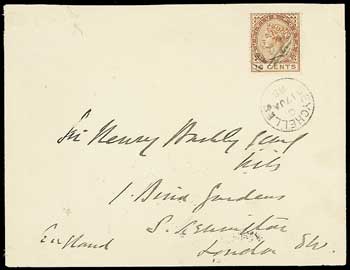 16 CENTS
SEYCHELLES
17 JA
Sir Henry Barkly
1. Bina Gardens
S. Kensington
London SW.
England